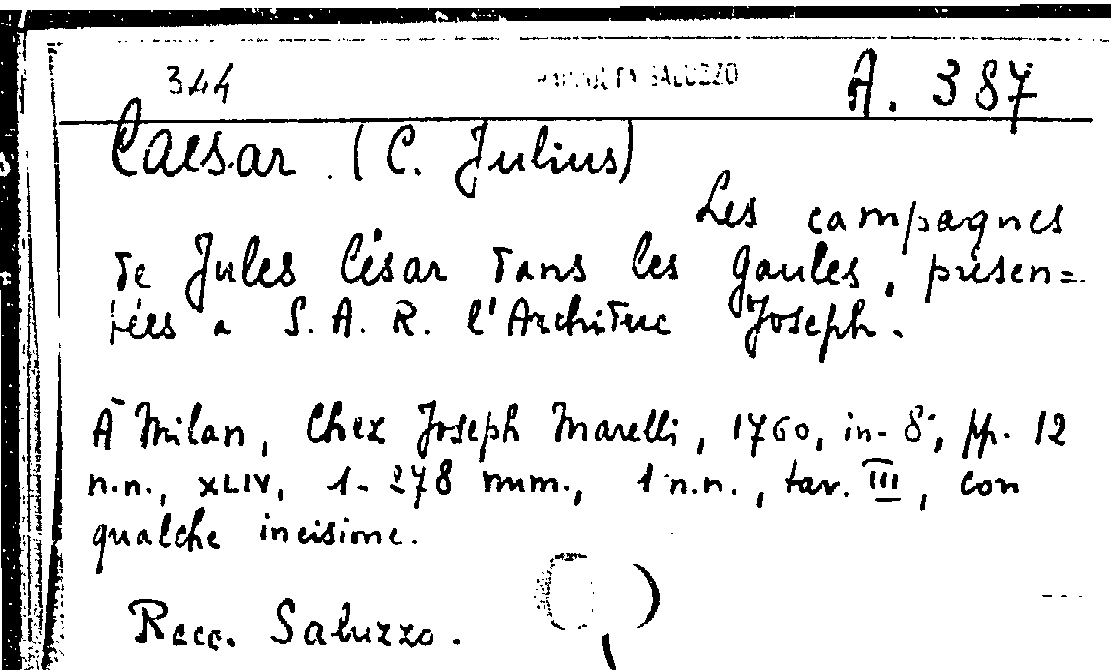 344 RACCOLTA SALUZZO A. 387
Caesar. (C. Julius)
Les campagnes
de Jules César dans les Gaules, présen=
tées a S. A. R. l'Architue Joseph.
À Milan, Chez Joseph Marelli, 1760, in-8°, pp. 12
n.n., XLIV, 1-278 num., 1 n.n., tav. III, con
qualche incisione.
Racc. Saluzzo.